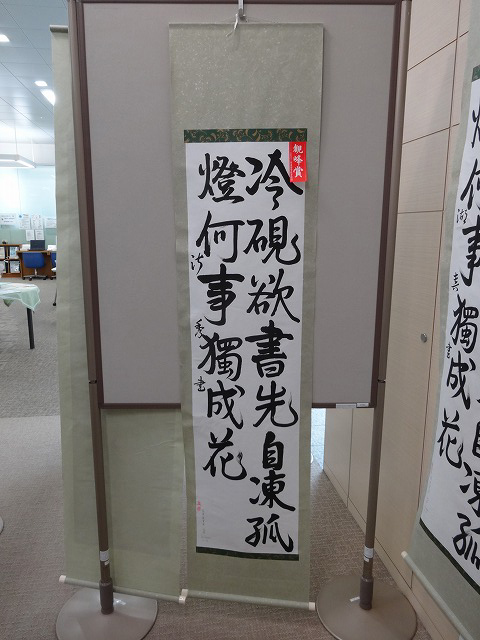 観峰賞
冷硯欲書先自凍孤
燈何事獨成花
書
自凍孤
何事獨成花
書